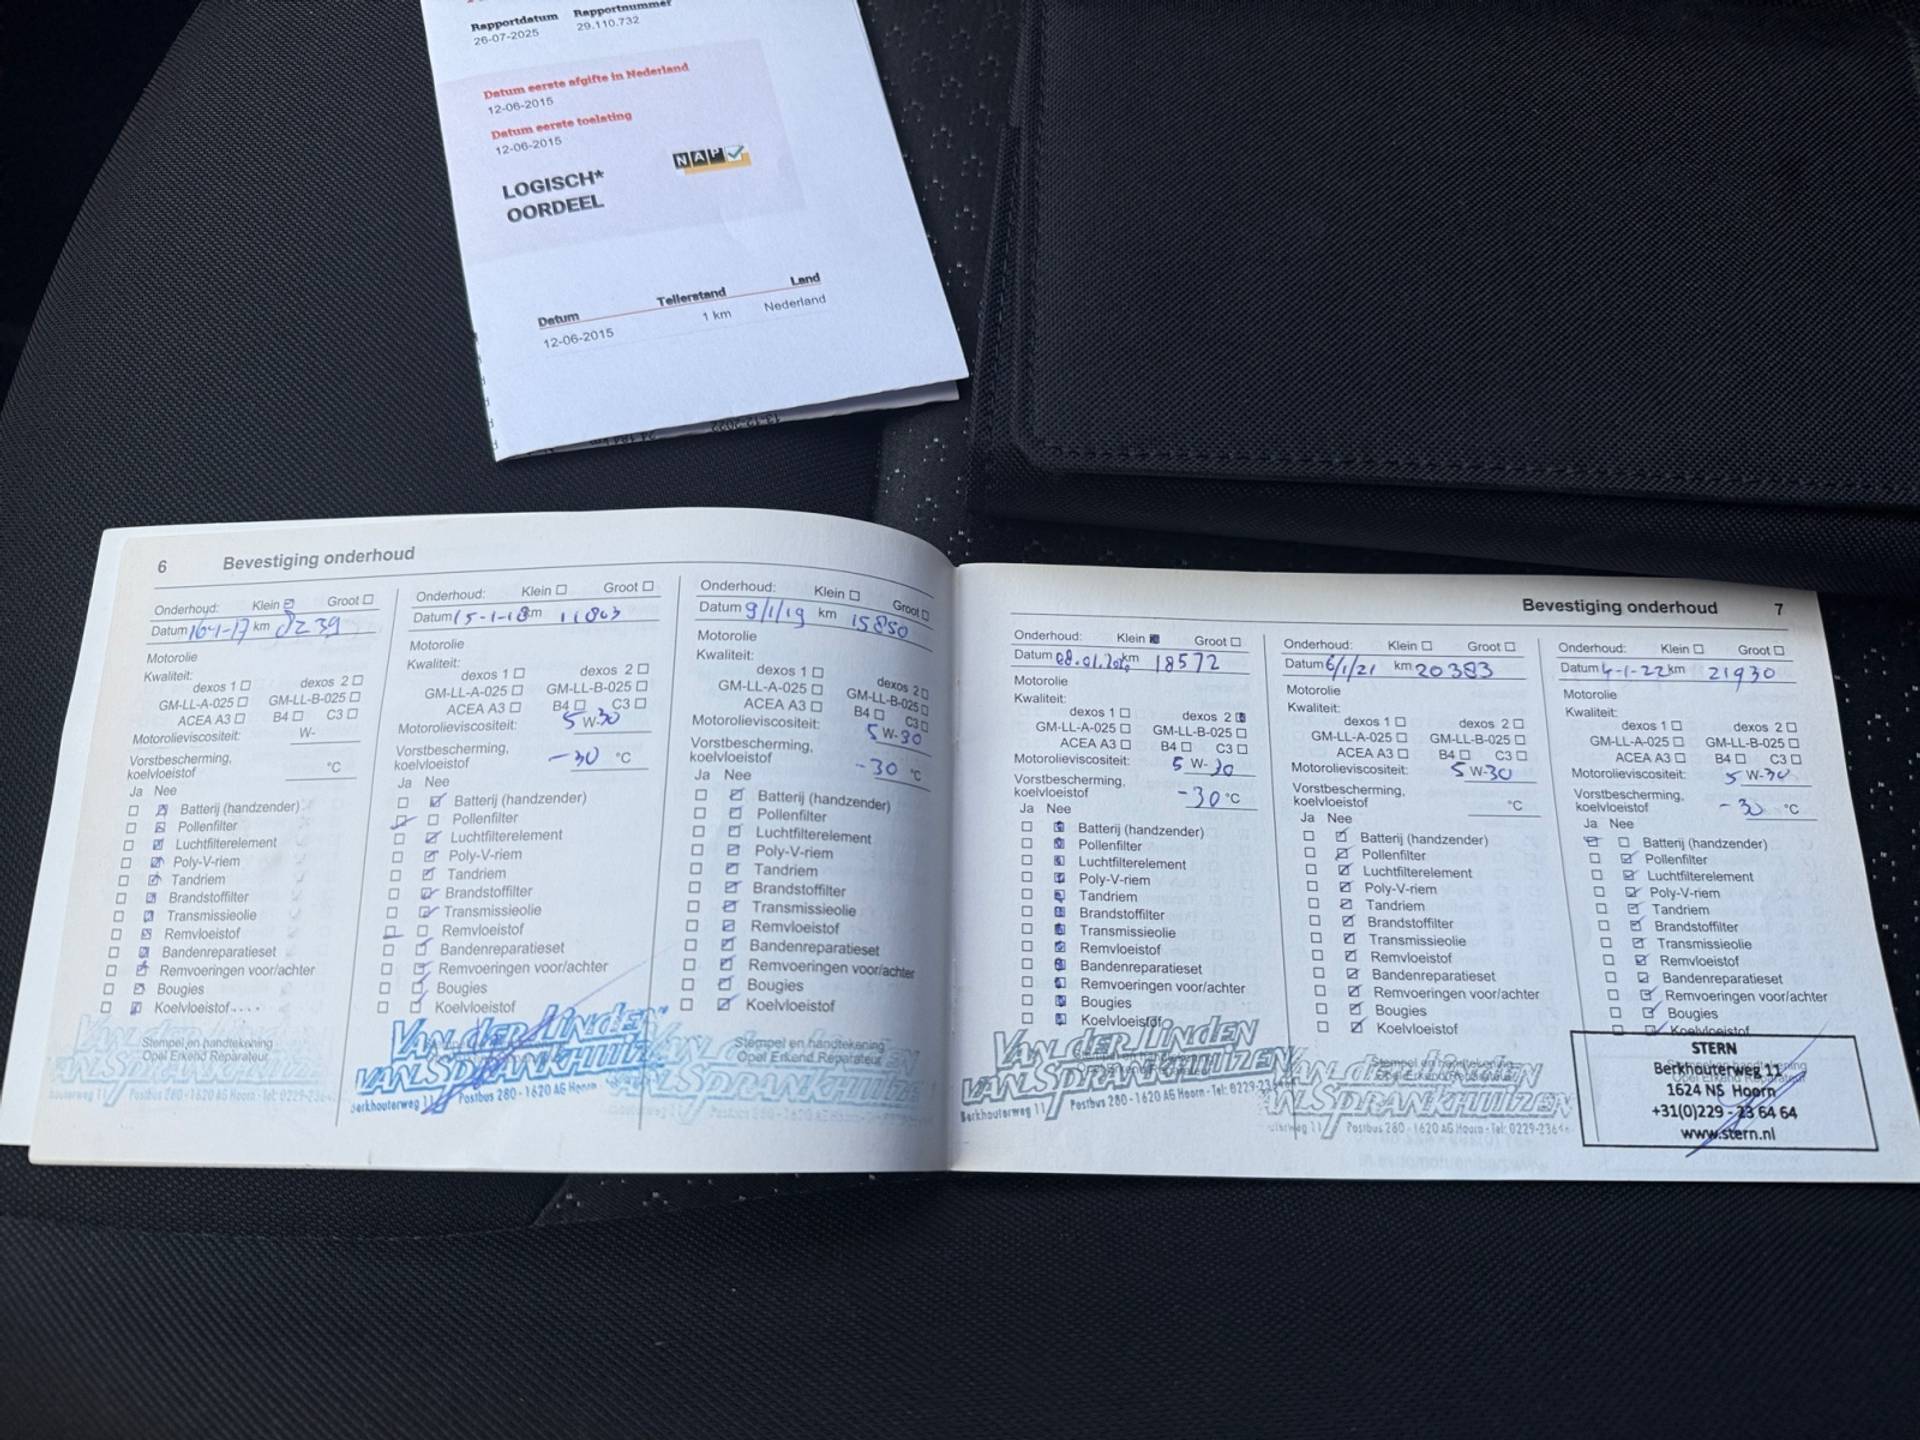 Rapportdatum Rapportnummer
26-07-2025 29.110.732
Datum eerste afgifte in Nederland
12-06-2015
Datum eerste toelating
12-06-2015
NAP
LOGISCH*
OORDEEL
Datum Tellerstand Land
12-06-2015 1 km Nederland
6 Bevestiging onderhoud
Onderhoud: Klein Groot
Datum 16-1-17 km 8239
Motorolie
Kwaliteit:
dexos 1 dexos 2
GM-LL-A-025 GM-LL-B-025
ACEA A3 B4 C3
Motorolieviscositeit: W-
Vorstbescherming,
koelvloeistof °C
Ja Nee
Batterij (handzender)
Pollenfilter
Luchtfilterelement
Poly-V-riem
Tandriem
Brandstoffilter
Transmissieolie
Remvloeistof
Bandenreparatieset
Remvoeringen voor/achter
Bougies
Koelvloeistof
Stempel en handtekening
Opel Erkend Reparateur
Onderhoud: Klein Groot
Datum 15-1-18 km 11803
Motorolie
Kwaliteit:
dexos 1 dexos 2
GM-LL-A-025 GM-LL-B-025
ACEA A3 B4 C3
Motorolieviscositeit: 5 W-30
Vorstbescherming,
koelvloeistof -30 °C
Ja Nee
Batterij (handzender)
Pollenfilter
Luchtfilterelement
Poly-V-riem
Tandriem
Brandstoffilter
Transmissieolie
Remvloeistof
Bandenreparatieset
Remvoeringen voor/achter
Bougies
Koelvloeistof
VAN DER LINDEN
VAN SPRANKHUIZEN
Berkhouterweg 11 Postbus 280 - 1620 AG Hoorn
Onderhoud: Klein Groot
Datum 9/1/19 km 15850
Motorolie
Kwaliteit:
dexos 1 dexos 2
GM-LL-A-025 GM-LL-B-025
ACEA A3 B4 C3
Motorolieviscositeit: 5 W-30
Vorstbescherming,
koelvloeistof -30 °C
Ja Nee
Batterij (handzender)
Pollenfilter
Luchtfilterelement
Poly-V-riem
Tandriem
Brandstoffilter
Transmissieolie
Remvloeistof
Bandenreparatieset
Remvoeringen voor/achter
Bougies
Koelvloeistof
Stempel en handtekening
Opel Erkend Reparateur
Bevestiging onderhoud 7
Onderhoud: Klein Groot
Datum 08.01.2020 km 18572
Motorolie
Kwaliteit:
dexos 1 dexos 2
GM-LL-A-025 GM-LL-B-025
ACEA A3 B4 C3
Motorolieviscositeit: 5 W-30
Vorstbescherming,
koelvloeistof -30 °C
Ja Nee
Batterij (handzender)
Pollenfilter
Luchtfilterelement
Poly-V-riem
Tandriem
Brandstoffilter
Transmissieolie
Remvloeistof
Bandenreparatieset
Remvoeringen voor/achter
Bougies
Koelvloeistof
VAN DER LINDEN
VAN SPRANKHUIZEN
Berkhouterweg 11 Postbus 280 - 1620 AG Hoorn - Tel: 0229-236
Onderhoud: Klein Groot
Datum 6/1/21 km 20383
Motorolie
Kwaliteit:
dexos 1 dexos 2
GM-LL-A-025 GM-LL-B-025
ACEA A3 B4 C3
Motorolieviscositeit: 5 W-30
Vorstbescherming,
koelvloeistof °C
Ja Nee
Batterij (handzender)
Pollenfilter
Luchtfilterelement
Poly-V-riem
Tandriem
Brandstoffilter
Transmissieolie
Remvloeistof
Bandenreparatieset
Remvoeringen voor/achter
Bougies
Koelvloeistof
VAN SPRANKHUIZEN
Postbus 280 - 1620 AG Hoorn - Tel: 0229-2364
Onderhoud: Klein Groot
Datum 4-1-22 km 21930
Motorolie
Kwaliteit:
dexos 1 dexos 2
GM-LL-A-025 GM-LL-B-025
ACEA A3 B4 C3
Motorolieviscositeit: 5 W-30
Vorstbescherming,
koelvloeistof -30 °C
Ja Nee
Batterij (handzender)
Pollenfilter
Luchtfilterelement
Poly-V-riem
Tandriem
Brandstoffilter
Transmissieolie
Remvloeistof
Bandenreparatieset
Remvoeringen voor/achter
Bougies
Koelvloeistof
STERN
Berkhouterweg 11
1624 NS Hoorn
+31(0)229 - 23 64 64
www.stern.nl